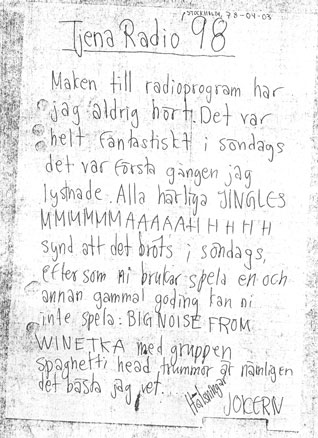 STOCKHOLM, 78-04-03
Tjena Radio 98
Maken till radioprogram har
jag aldrig hört. Det var
helt fantastiskt i söndags
det var första gången jag
lystnade. Alla härliga JINGLES
MMMMMMAAAAAHHHHH
synd att det bröts i söndags,
eftersom ni brukar spela en och
annan gammal goding kan ni
inte spela: BIG NOISE FROM
WINETKA med gruppen
spaghetti head, trummor är nämligen
det bästa jag vet.
Hälsningar
JOKERN